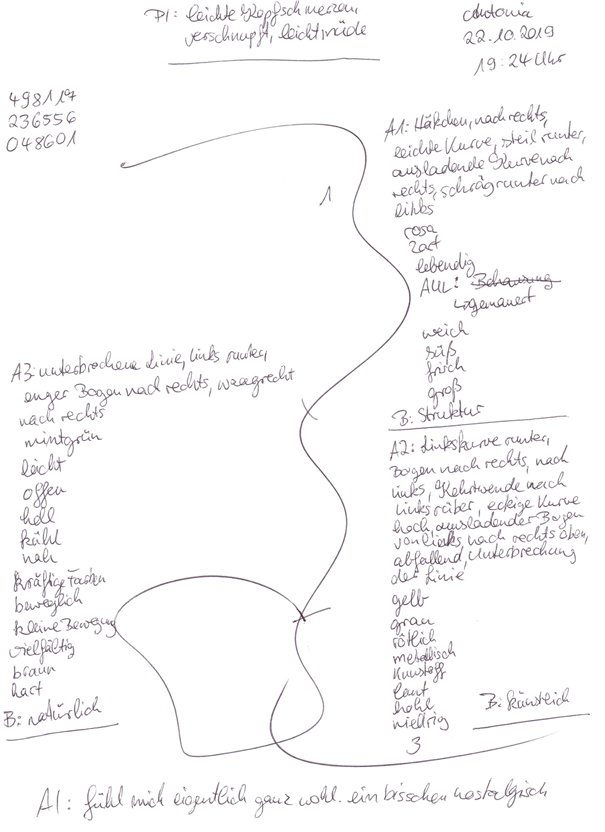 PI: leichte Kopfschmerzen,
verschnupft, leicht müde
Antonia
22.10.2019
19:24 Uhr
498119
236556
048601
1
A1: Häkchen, nach rechts,
leichte Kurve, steil runter,
ausladende Kurve nach
rechts, schräg runter nach
links
rosa
zart
lebendig
AUL: Behausung
gemauert
weich
süß
frisch
groß
B: Struktur
A2: Linkskurve runter,
Bogen nach rechts, nach
links, Kehrtwende nach
links rüber, eckige Kurve
hoch, ausladender Bogen
von links nach rechts oben,
abfallend, Unterbrechung
der Linie
gelb
grau
rötlich
metallisch
Kunstoff
laut
hohl
niedrig
B: künstlich
3
A3: unterbrochene Linie, links runter,
enger Bogen nach rechts, waagrecht
nach rechts
mintgrün
leicht
offen
hell
kühl
nah
kräftige Farben
beweglich
kleine Bewegung
vielfältig
braun
hart
B: natürlich
AI: fühl mich eigentlich ganz wohl. ein bisschen nostalgisch